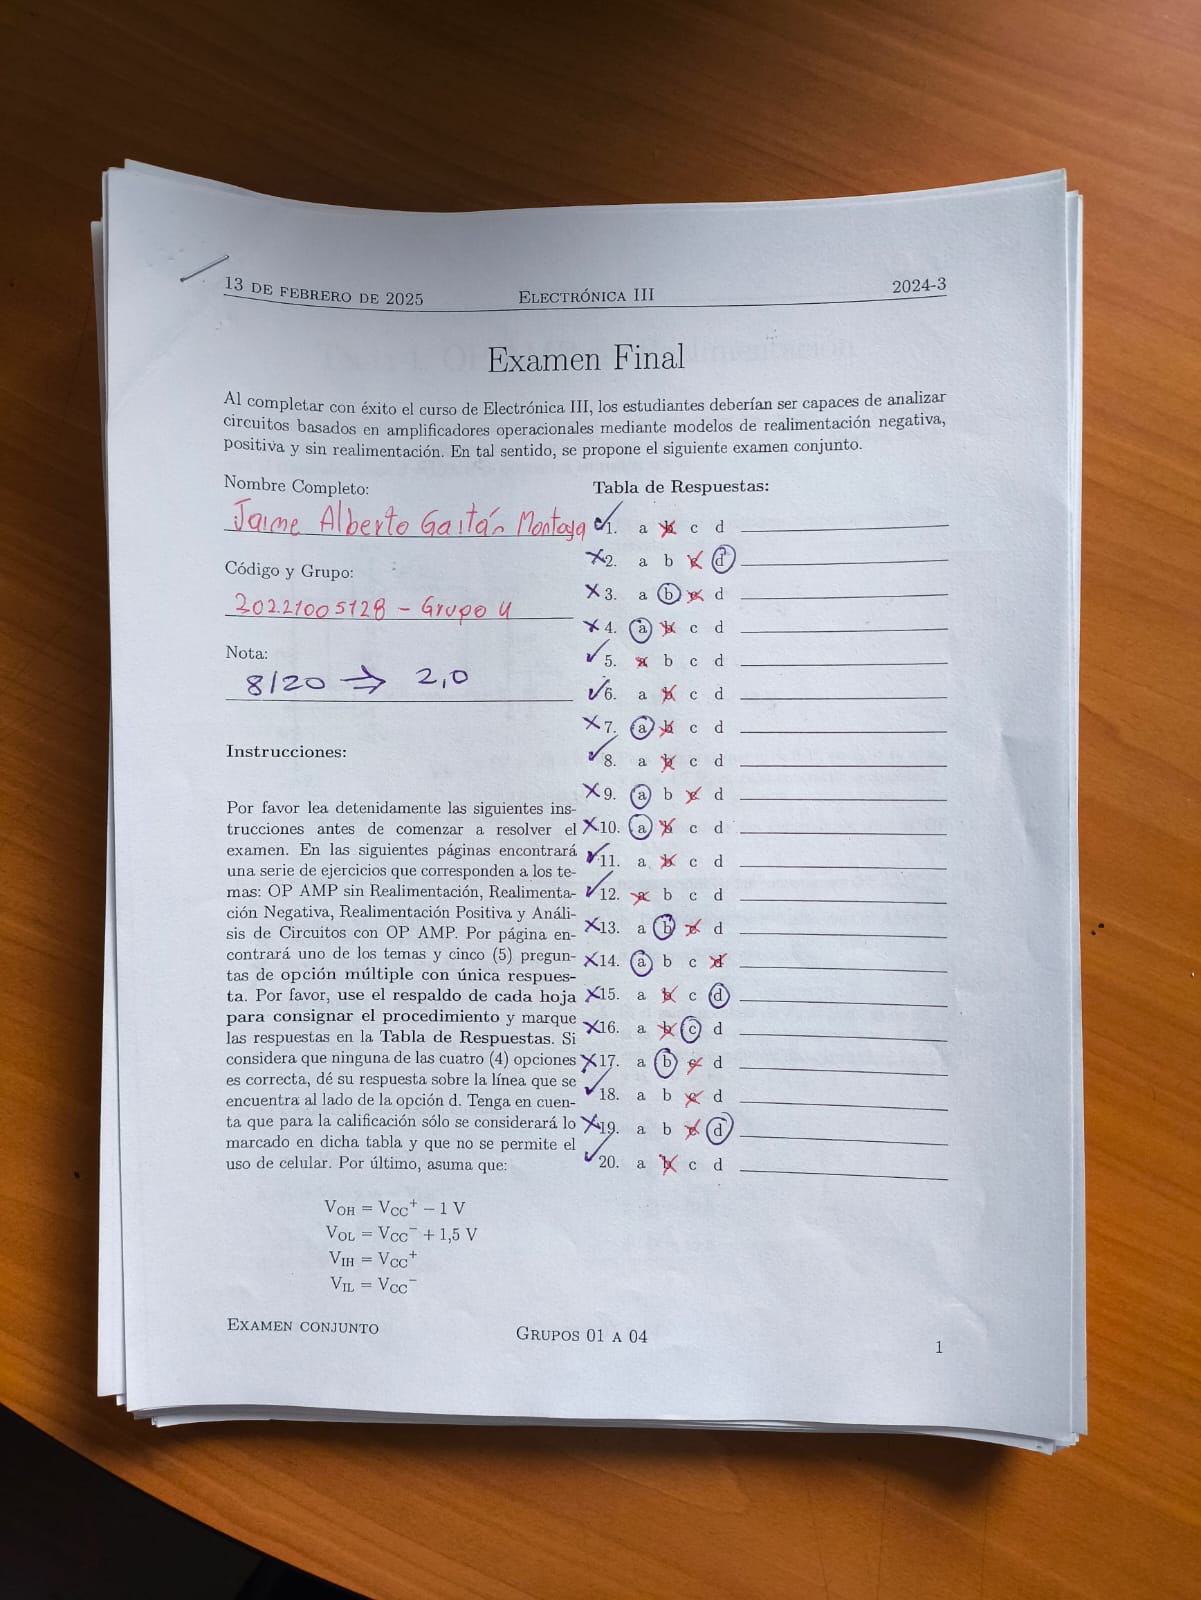 13 DE FEBRERO DE 2025 ELECTRÓNICA III 2024-3
Examen Final
Al completar con éxito el curso de Electrónica III, los estudiantes deberían ser capaces de analizar
circuitos basados en amplificadores operacionales mediante modelos de realimentación negativa,
positiva y sin realimentación. En tal sentido, se propone el siguiente examen conjunto.
Nombre Completo:
Jaime Alberto Gaitán Montoya
Código y Grupo:
20221005128 - Grupo 4
Nota:
8/20 ⇒ 2,0
Instrucciones:
Por favor lea detenidamente las siguientes ins-
trucciones antes de comenzar a resolver el
examen. En las siguientes páginas encontrará
una serie de ejercicios que corresponden a los te-
mas: OP AMP sin Realimentación, Realimenta-
ción Negativa, Realimentación Positiva y Análi-
sis de Circuitos con OP AMP. Por página en-
contrará uno de los temas y cinco (5) pregun-
tas de opción múltiple con única respues-
ta. Por favor, use el respaldo de cada hoja
para consignar el procedimiento y marque
las respuestas en la Tabla de Respuestas. Si
considera que ninguna de las cuatro (4) opciones
es correcta, dé su respuesta sobre la línea que se
encuentra al lado de la opción d. Tenga en cuen-
ta que para la calificación sólo se considerará lo
marcado en dicha tabla y que no se permite el
uso de celular. Por último, asuma que:
V_OH = V_CC⁺ − 1 V
V_OL = V_CC⁻ + 1,5 V
V_IH = V_CC⁺
V_IL = V_CC⁻
Tabla de Respuestas:
✓1. a b c d
✗2. a b c d
✗3. a b c d
✗4. a b c d
✓5. a b c d
✓6. a b c d
✗7. a b c d
✓8. a b c d
✗9. a b c d
✗10. a b c d
✓11. a b c d
✓12. a b c d
✗13. a b c d
✗14. a b c d
✗15. a b c d
✗16. a b c d
✗17. a b c d
✓18. a b c d
✗19. a b c d
✓20. a b c d
EXAMEN CONJUNTO GRUPOS 01 A 04 1